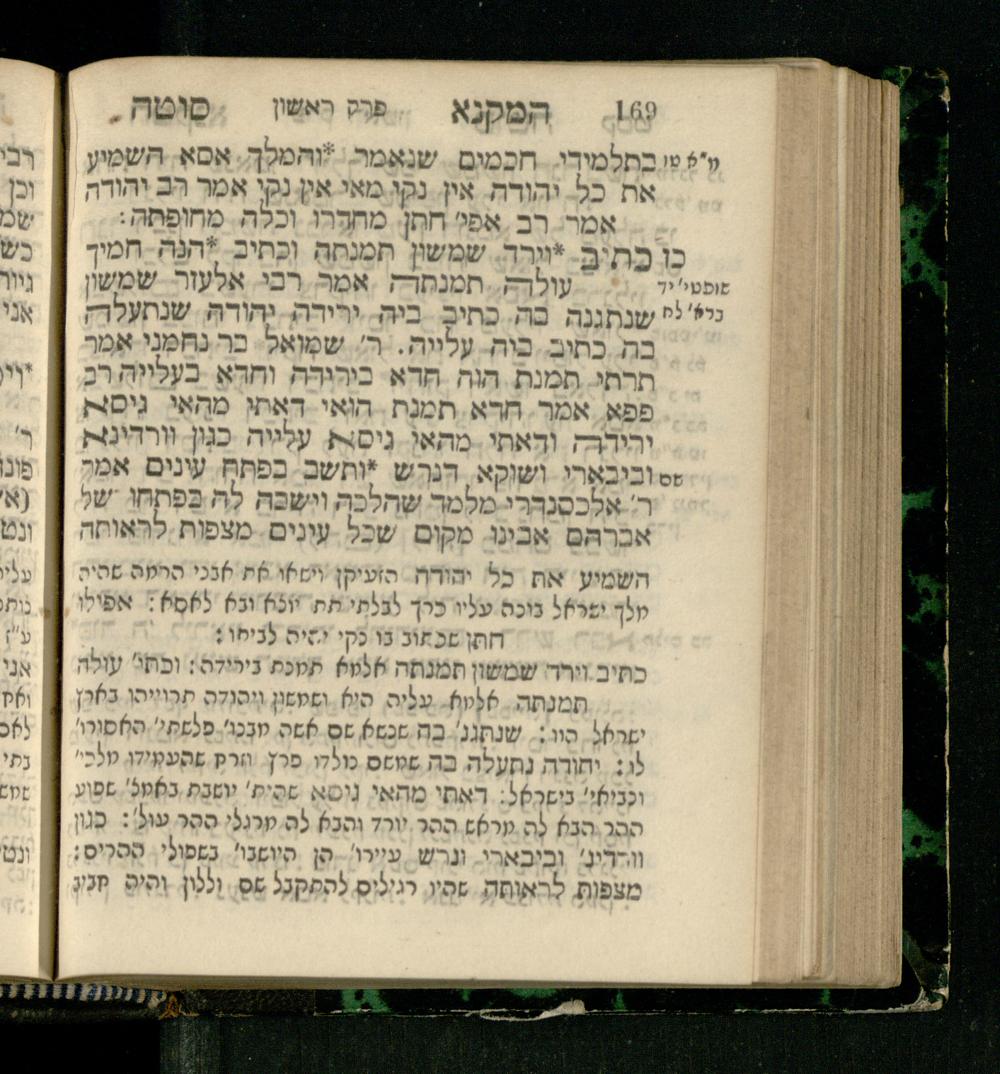 169 המקנא פרק ראשון סוטה
מ"א טו בתלמידי חכמים שנאמר *והמלך אסא השמיע
את כל יהודה אין נקי מאי אין נקי אמר רב יהודה
אמר רב אפי' חתן מחדרו וכלה מחופתה:
כו כתיב *וירד שמשון תמנתה וכתיב *הנה חמיך
שופטי' יד עולה תמנתה אמר רבי אלעזר שמשון
ברא' לח שנתגנה בה כתיב ביה ירידה יהודה שנתעלה
בה כתיב ביה עלייה. ר' שמואל בר נחמני אמר
תרתי תמנת הוה חדא בירידה וחדא בעלייה רב
פפא אמר חדא תמנת הואי דאתי מהאי גיסא
ירידה ודאתי מהאי גיסא עלייה כגון וורדינא
שם וביבארי ושוקא דנרש *ותשב בפתח עינים אמר
ר' אלכסנדרי מלמד שהלכה וישבה לה בפתחו של
אברהם אבינו מקום שכל עינים מצפות לראותה
השמיע את כל יהודה הזעיקן וישאו את אבני הרמה שהיה
מלך ישראל בונה עליו כרך לבלתי תת יוצא ובא לאסא: אפילו
חתן שכתוב בו נקי יהיה לביתו:
כתיב וירד שמשון תמנתה אלמא תמנת בירידה: וכתי' עולה
תמנתה אלמא עליה היא ושמשון ויהודה תרוייהו בארץ
ישראל הוו: שנתגנ' בה שנשא שם אשה מבנו' פלשתי' האסורו'
לו: יהודה נתעלה בה שמשם נולדו פרץ וזרח שהעמידו מלכי'
ונביאי' בישראל: דאתי מהאי גיסא שהית' יושבת באמצ' שפוע
ההר הבא לה מראש ההר יורד והבא לה מרגלי ההר עול': כגון
וורדינ' וביבארי ונרש עיירו' הן היושבו' בשפולי ההרים:
מצפות לראותה שהיו רגילים להתקבל שם וללון והיה חביב